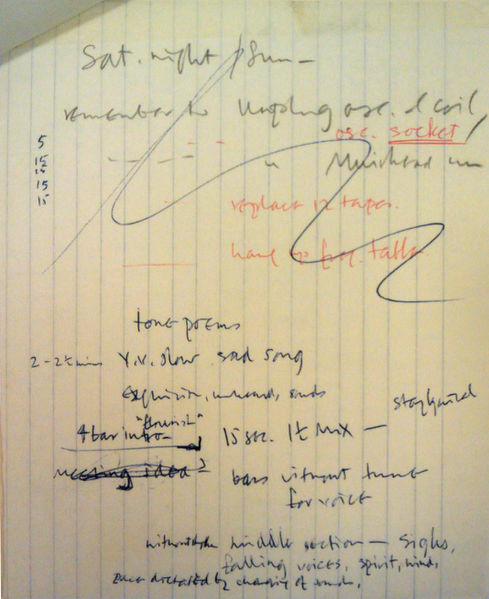 Sat. night / Sun —
remember to unplug osc. & coil
osc. socket
5
15
15
15
" Muirhead
replace 12 tapes.
hang up freq. table
tone poems
2-2½ mins v.v. slow sad song
unheard, sounds
"flourish"
4 bar intro 15 sec. 1t mix —
idea? bars without tune
for voice
middle section — sighs,
falling voices, spirit, wind,
pace dictated by changing of sounds.